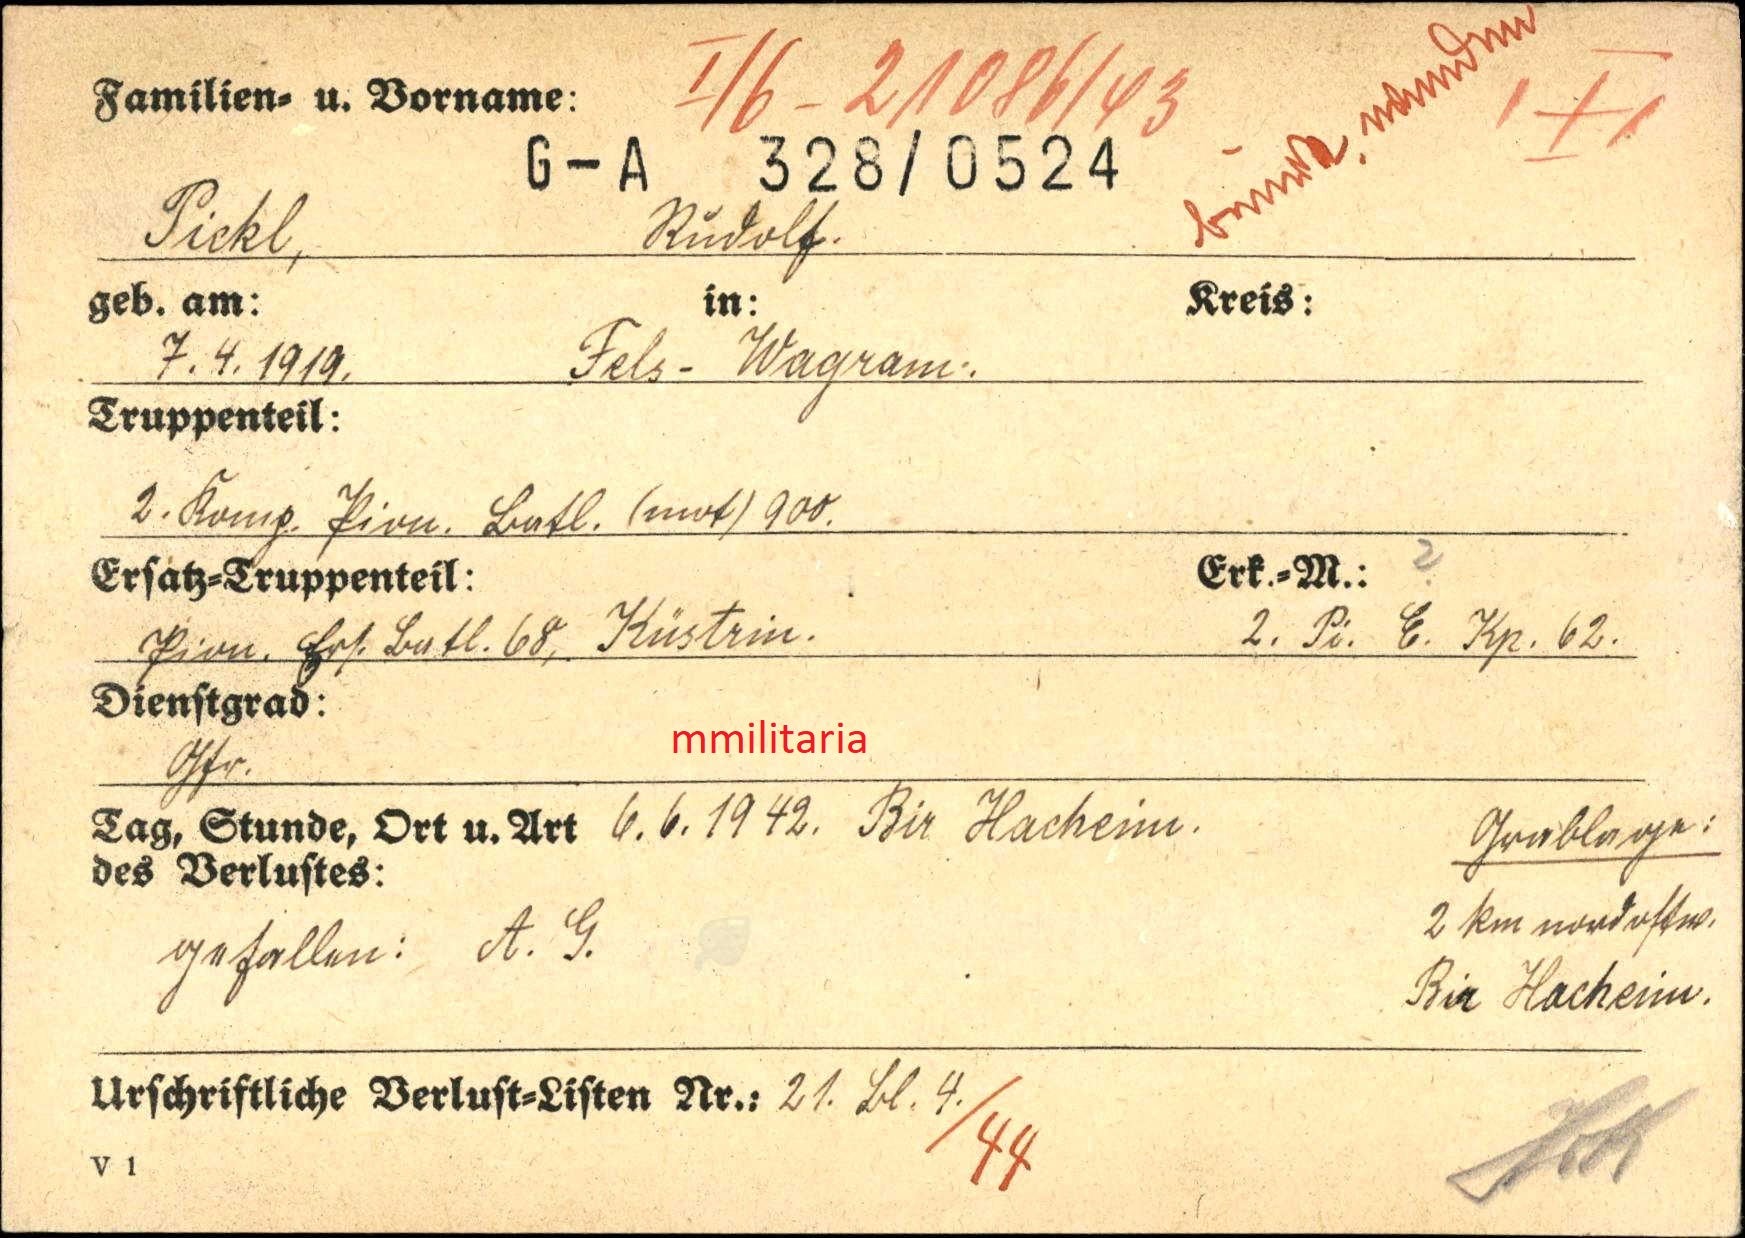 Familien- u. Vorname:
I/6 - 21086/43
G-A 328/0524
Pickl, Rudolf.
geb. am: in: Kreis:
7.4.1919. Fels- Wagram.
Truppenteil:
2. Komp. Pion. Batl. (mot) 900.
Ersatz-Truppenteil: Erk.-M.: ?
Pion. Ers. Batl. 68, Küstrin. 2. Pi. E. Kp. 62.
Dienstgrad:
Gfr.
mmilitaria
Tag, Stunde, Ort u. Art 6.6.1942. Bir Hacheim.
des Verlustes:
gefallen: A. G.
Grablage:
2 km nordostw.
Bir Hacheim.
Urschriftliche Verlust-Listen Nr.: 21. Bl. 4./44
V 1